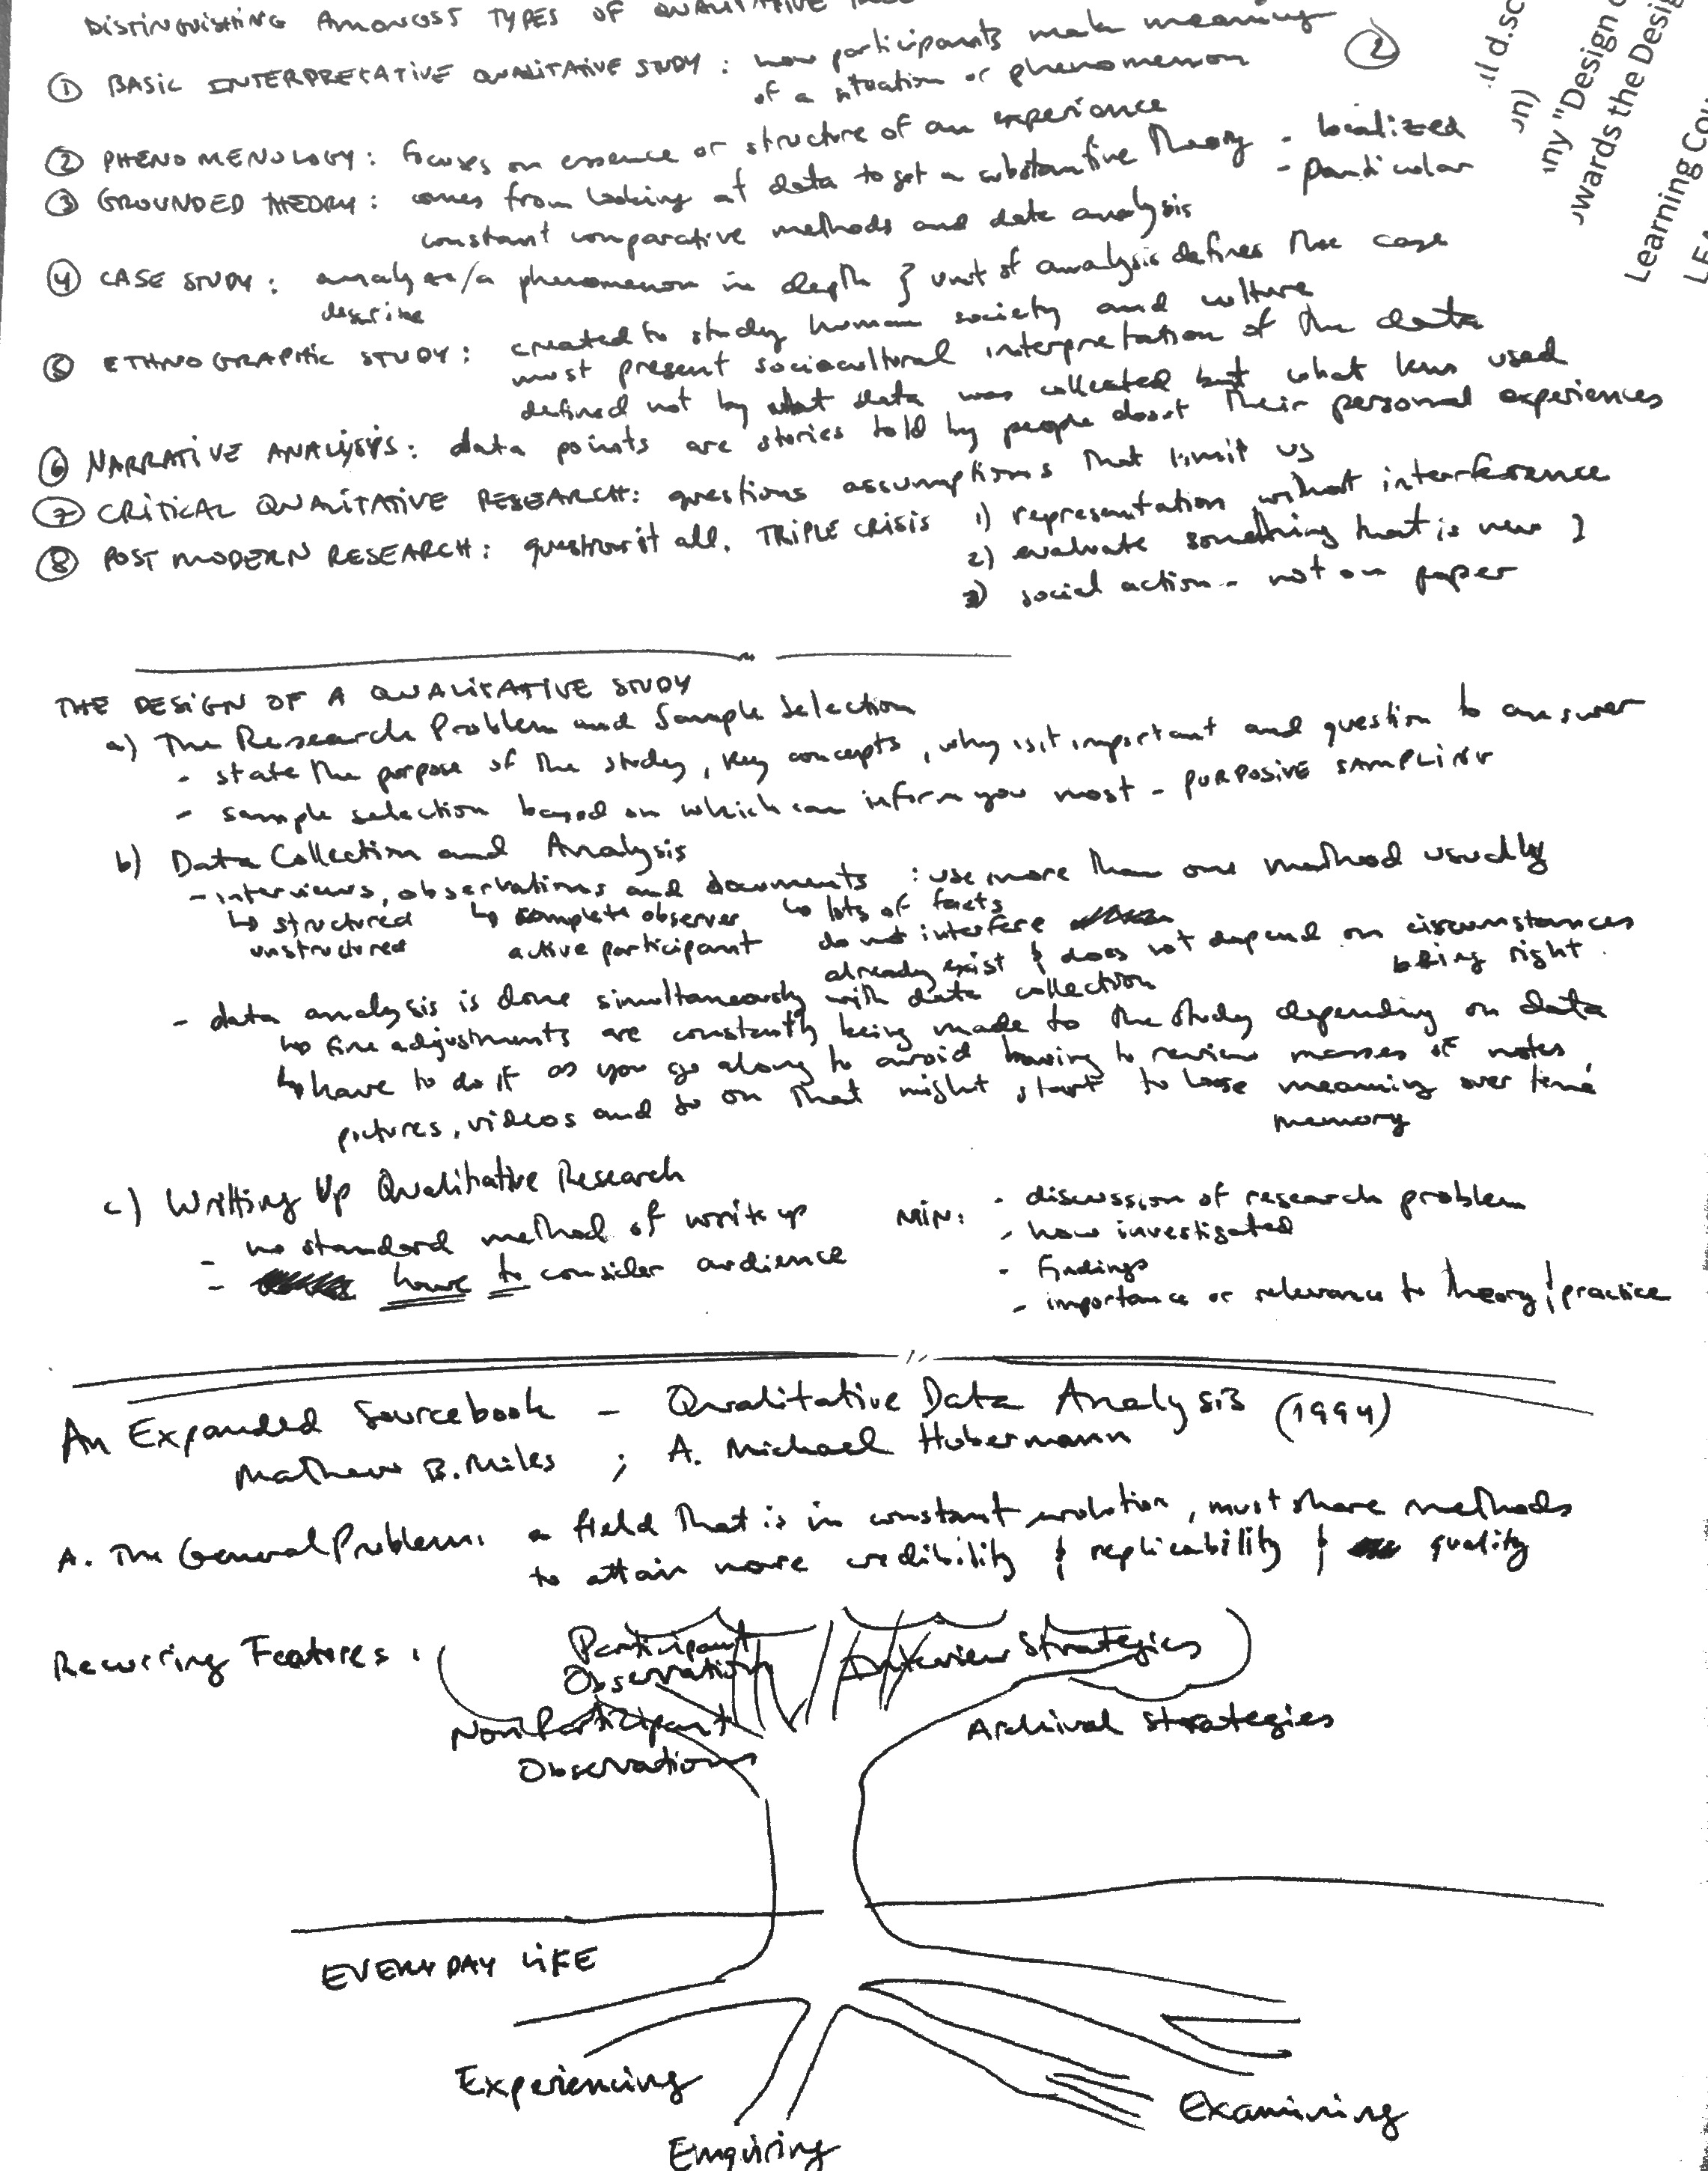 DISTINGUISHING AMONGST TYPES OF QUALITATIVE
2
① BASIC INTERPRETATIVE QUALITATIVE STUDY : how participants make meaning
of a situation or phenomenon
② PHENOMENOLOGY : focuses on essence or structure of an experience
③ GROUNDED THEORY : comes from looking at data to get a substantive theory - localized
- particular
constant comparative methods and data analysis
④ CASE STUDY : analyze/a phenomenon in depth } unit of analysis defines the case
describe
⑤ ETHNOGRAPHIC STUDY : created to study human society and culture
must present sociocultural interpretation of the data
defined not by what data was collected but what lens used
⑥ NARRATIVE ANALYSIS : data points are stories told by people about their personal experiences
⑦ CRITICAL QUALITATIVE RESEARCH : questions assumptions that limit us
⑧ POST MODERN RESEARCH : question it all. TRIPLE CRISIS 1) representation without interference
2) evaluate something that is new
3) social action - not on paper
THE DESIGN OF A QUALITATIVE STUDY
a) The Research Problem and Sample Selection
- state the purpose of the study, key concepts, why is it important and question to answer
- sample selection based on which can inform you most - PURPOSIVE SAMPLING
b) Data Collection and Analysis
- interviews, observations and documents : use more than one method usually
↳ structured ↳ complete observer ↳ lots of facts
unstructured active participant do not interfere
already exist & does not depend on circumstances
being right.
- data analysis is done simultaneously with data collection
↳ fine adjustments are constantly being made to the study depending on data
↳ have to do it as you go along to avoid having to review masses of notes,
pictures, videos and so on that might start to lose meaning over time
memory
c) Writting Up Qualitative Research
- no standard method of write up
- have to consider audience
MIN: - discussion of research problem
- how investigated
- findings
- importance or relevance to theory & practice
An Expanded Sourcebook - Qualitative Data Analysis (1994)
Mathew B. Miles ; A. Michael Hubermann
A. The General Problem: a field that is in constant evolution, must share methods
to attain more credibility & replicability & quality
Recurring Features :
Participant
Observation
Interview Strategies
Non Participant
Observation
Archival Strategies
EVERYDAY LIFE
Experiencing
Enquiring
Examining
"Design
the
Learning